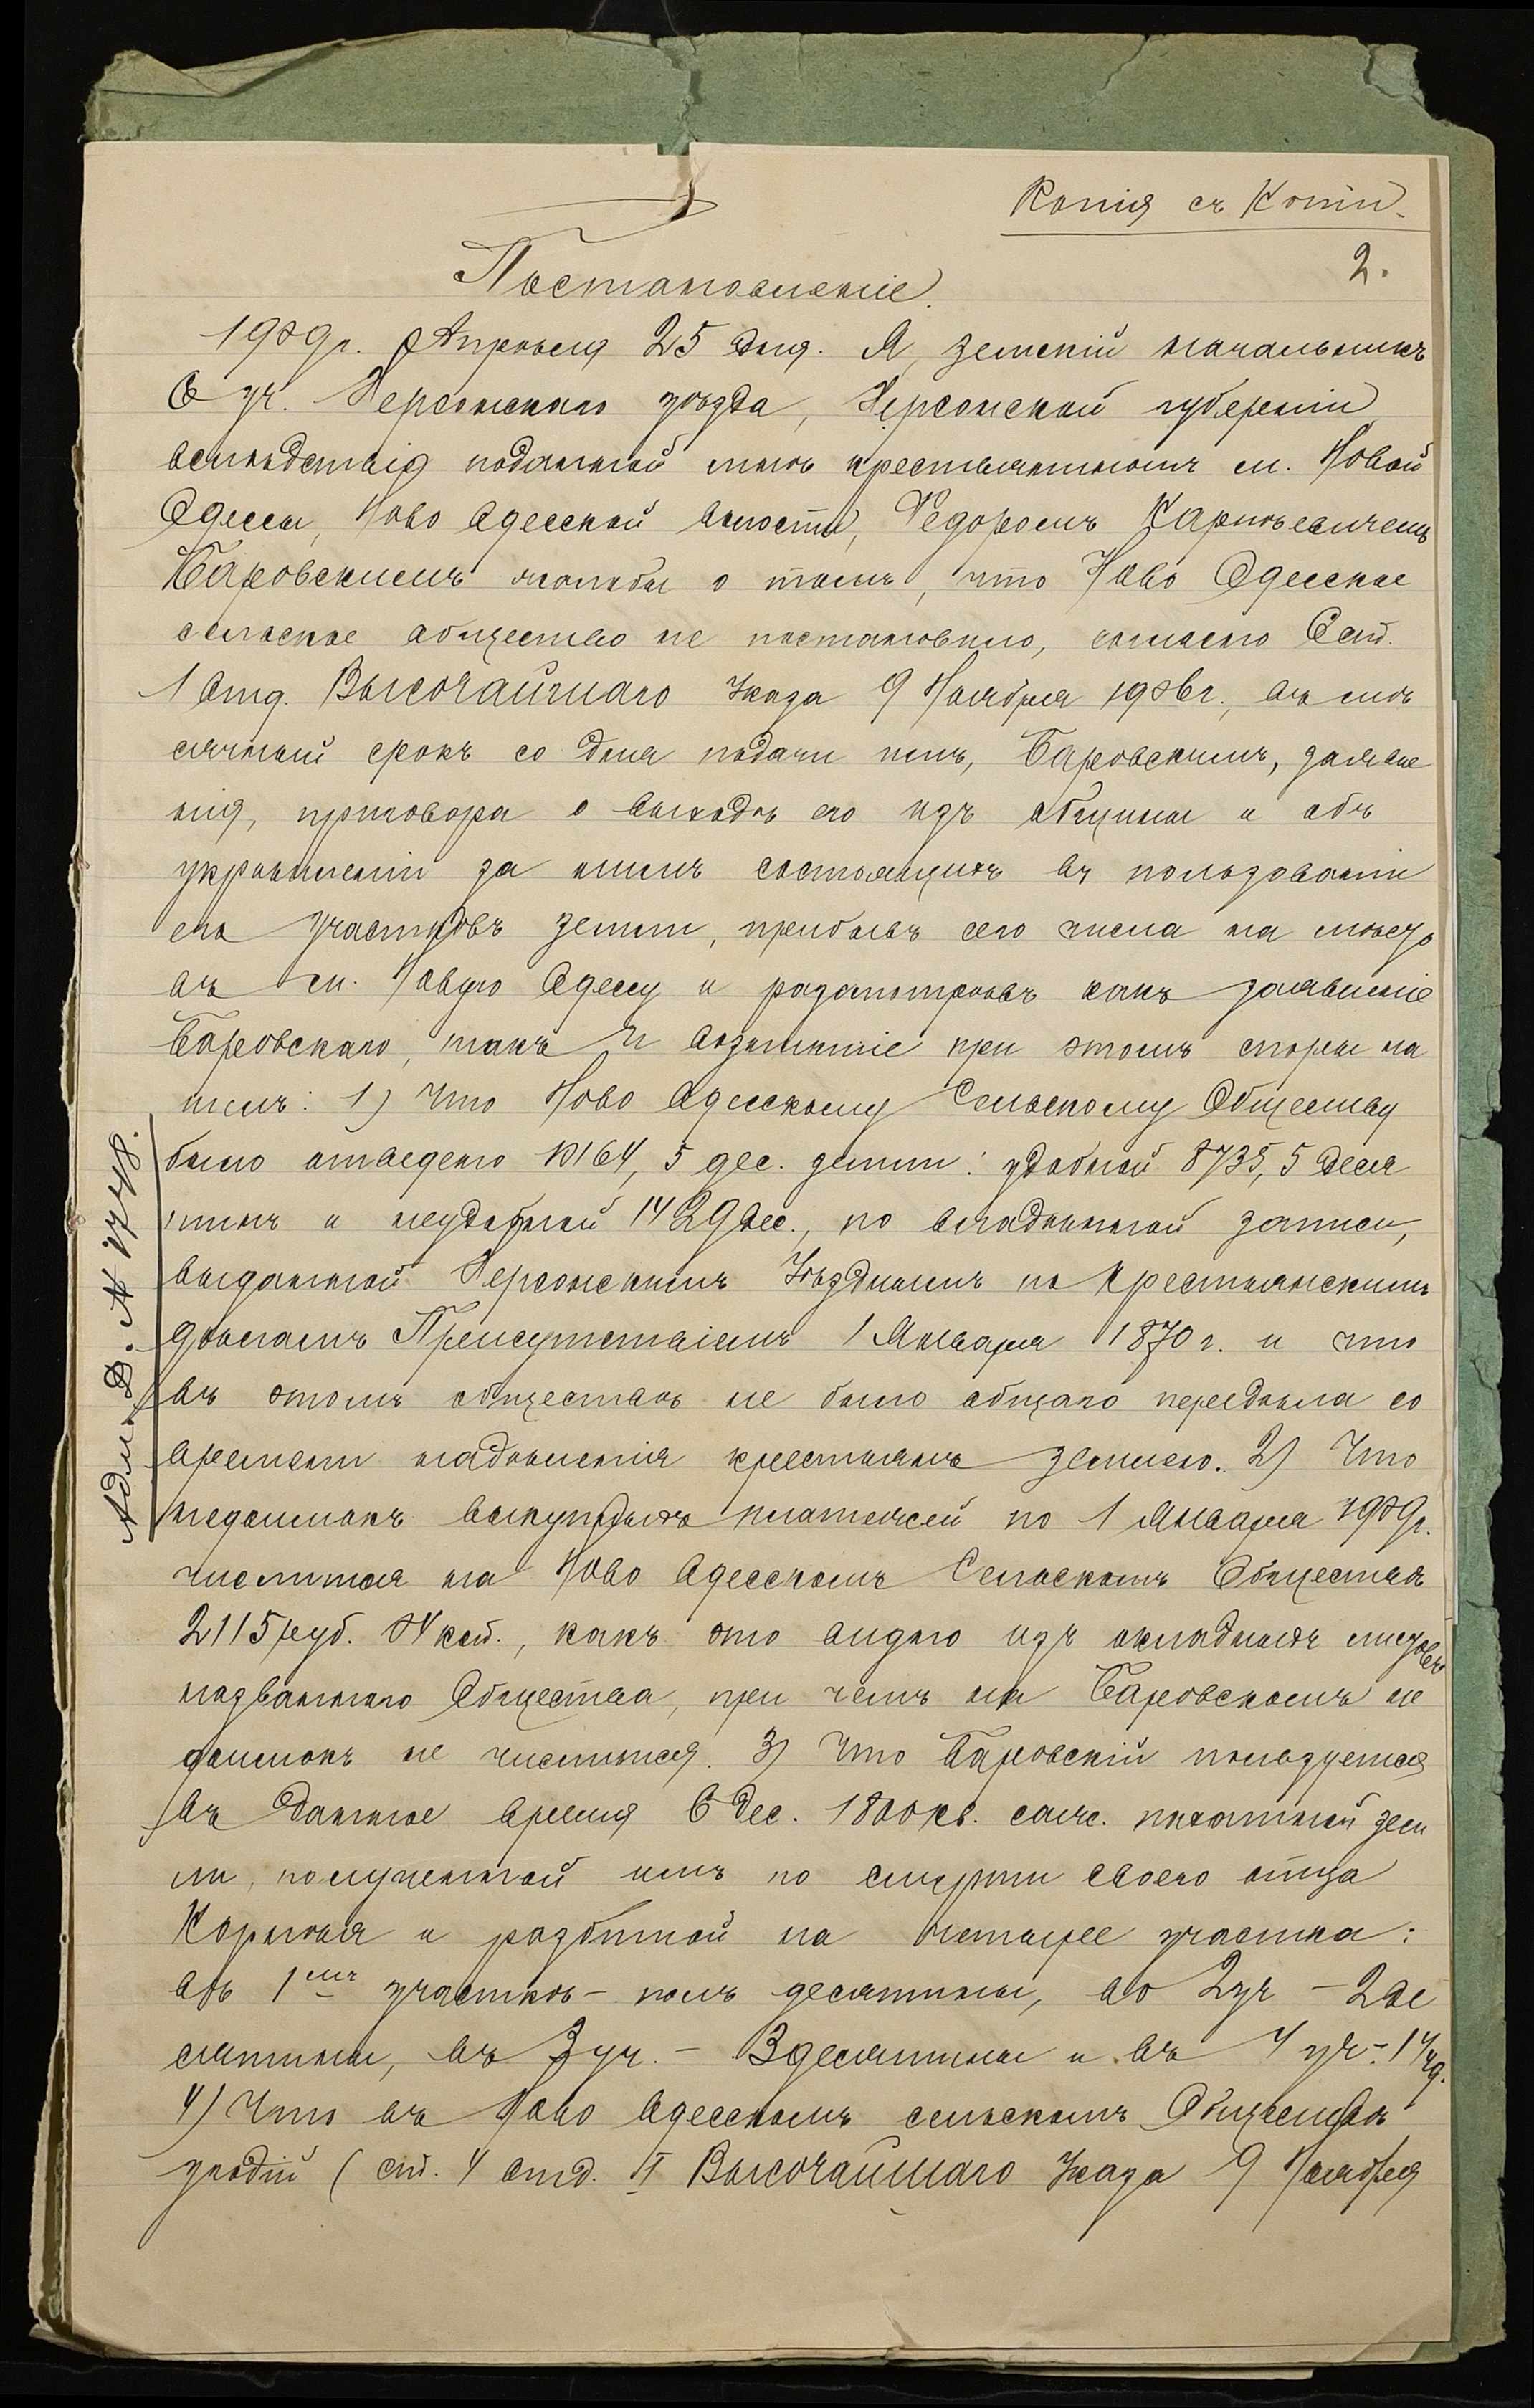 Копія съ Копіи.
2.
Постановленіе.
1909г. Апрѣля 25 дня. Я, земскій начальникъ
6 уч. Херсонскаго уѣзда, Херсонской губерніи
вслѣдствіе поданной мнѣ крестьяниномъ м. Новой
Одессы, Ново Одесской волости, Федоромъ Карпѣевичемъ
Баровскимъ жалобы о томъ, что Ново Одесское
сельское общество не постановило, согласно 6 ст.
1 отд. Высочайшаго Указа 9 Ноября 1906г., въ мѣ
сячный срокъ со дня подачи имъ, Баровскимъ, заявле
нія, приговора о выходѣ его изъ общины и объ
укрѣпленіи за нимъ состоящихъ въ пользованіи
его участковъ земли, прибывъ сего числа на мѣсто
въ м. Новую Одессу и разсмотрѣвъ какъ заявленіе
Баровскаго, такъ и возникшіе при этомъ споры на
шелъ: 1) Что Ново Одесскому Сельскому Обществу
было отведено 10164,5 дес. земли: удобной 8735,5 деся
тинъ и неудобной 1429 дес., по владѣнной записи,
выданной Херсонскимъ Уѣзднымъ по крестьянскимъ
дѣламъ Присутствіемъ 1 Января 1870 г. и что
въ этомъ обществѣ не было общаго передѣла со
времени надѣленія крестьянъ землею. 2) Что
недоимокъ выкупныхъ платежей по 1 Января 1909г.
числится на Ново Одесскомъ Сельскомъ Обществѣ
2115 руб. 04 коп., какъ это видно изъ окладныхъ листовъ
названнаго Общества, при чемъ на Баровскомъ не
доимокъ не числится. 3) Что Баровскій пользуется
въ данное время 6 дес. 1800 кв. саж. пахатной зем
ли, полученной имъ по смерти своего отца
Карпѣя и разбитой на четыре участка:
въ 1мъ участкѣ – полъ десятины, во 2 уч – 2 де
сятины, въ 3 уч. – 3 десятины и въ 4 уч – 1 1/4 д.
4) Что въ Ново Одесскомъ сельскомъ Обществѣ
угодій (ст. 4 отд. I Высочайшаго Указа 9 Ноября
Адм. Д. № 1748.